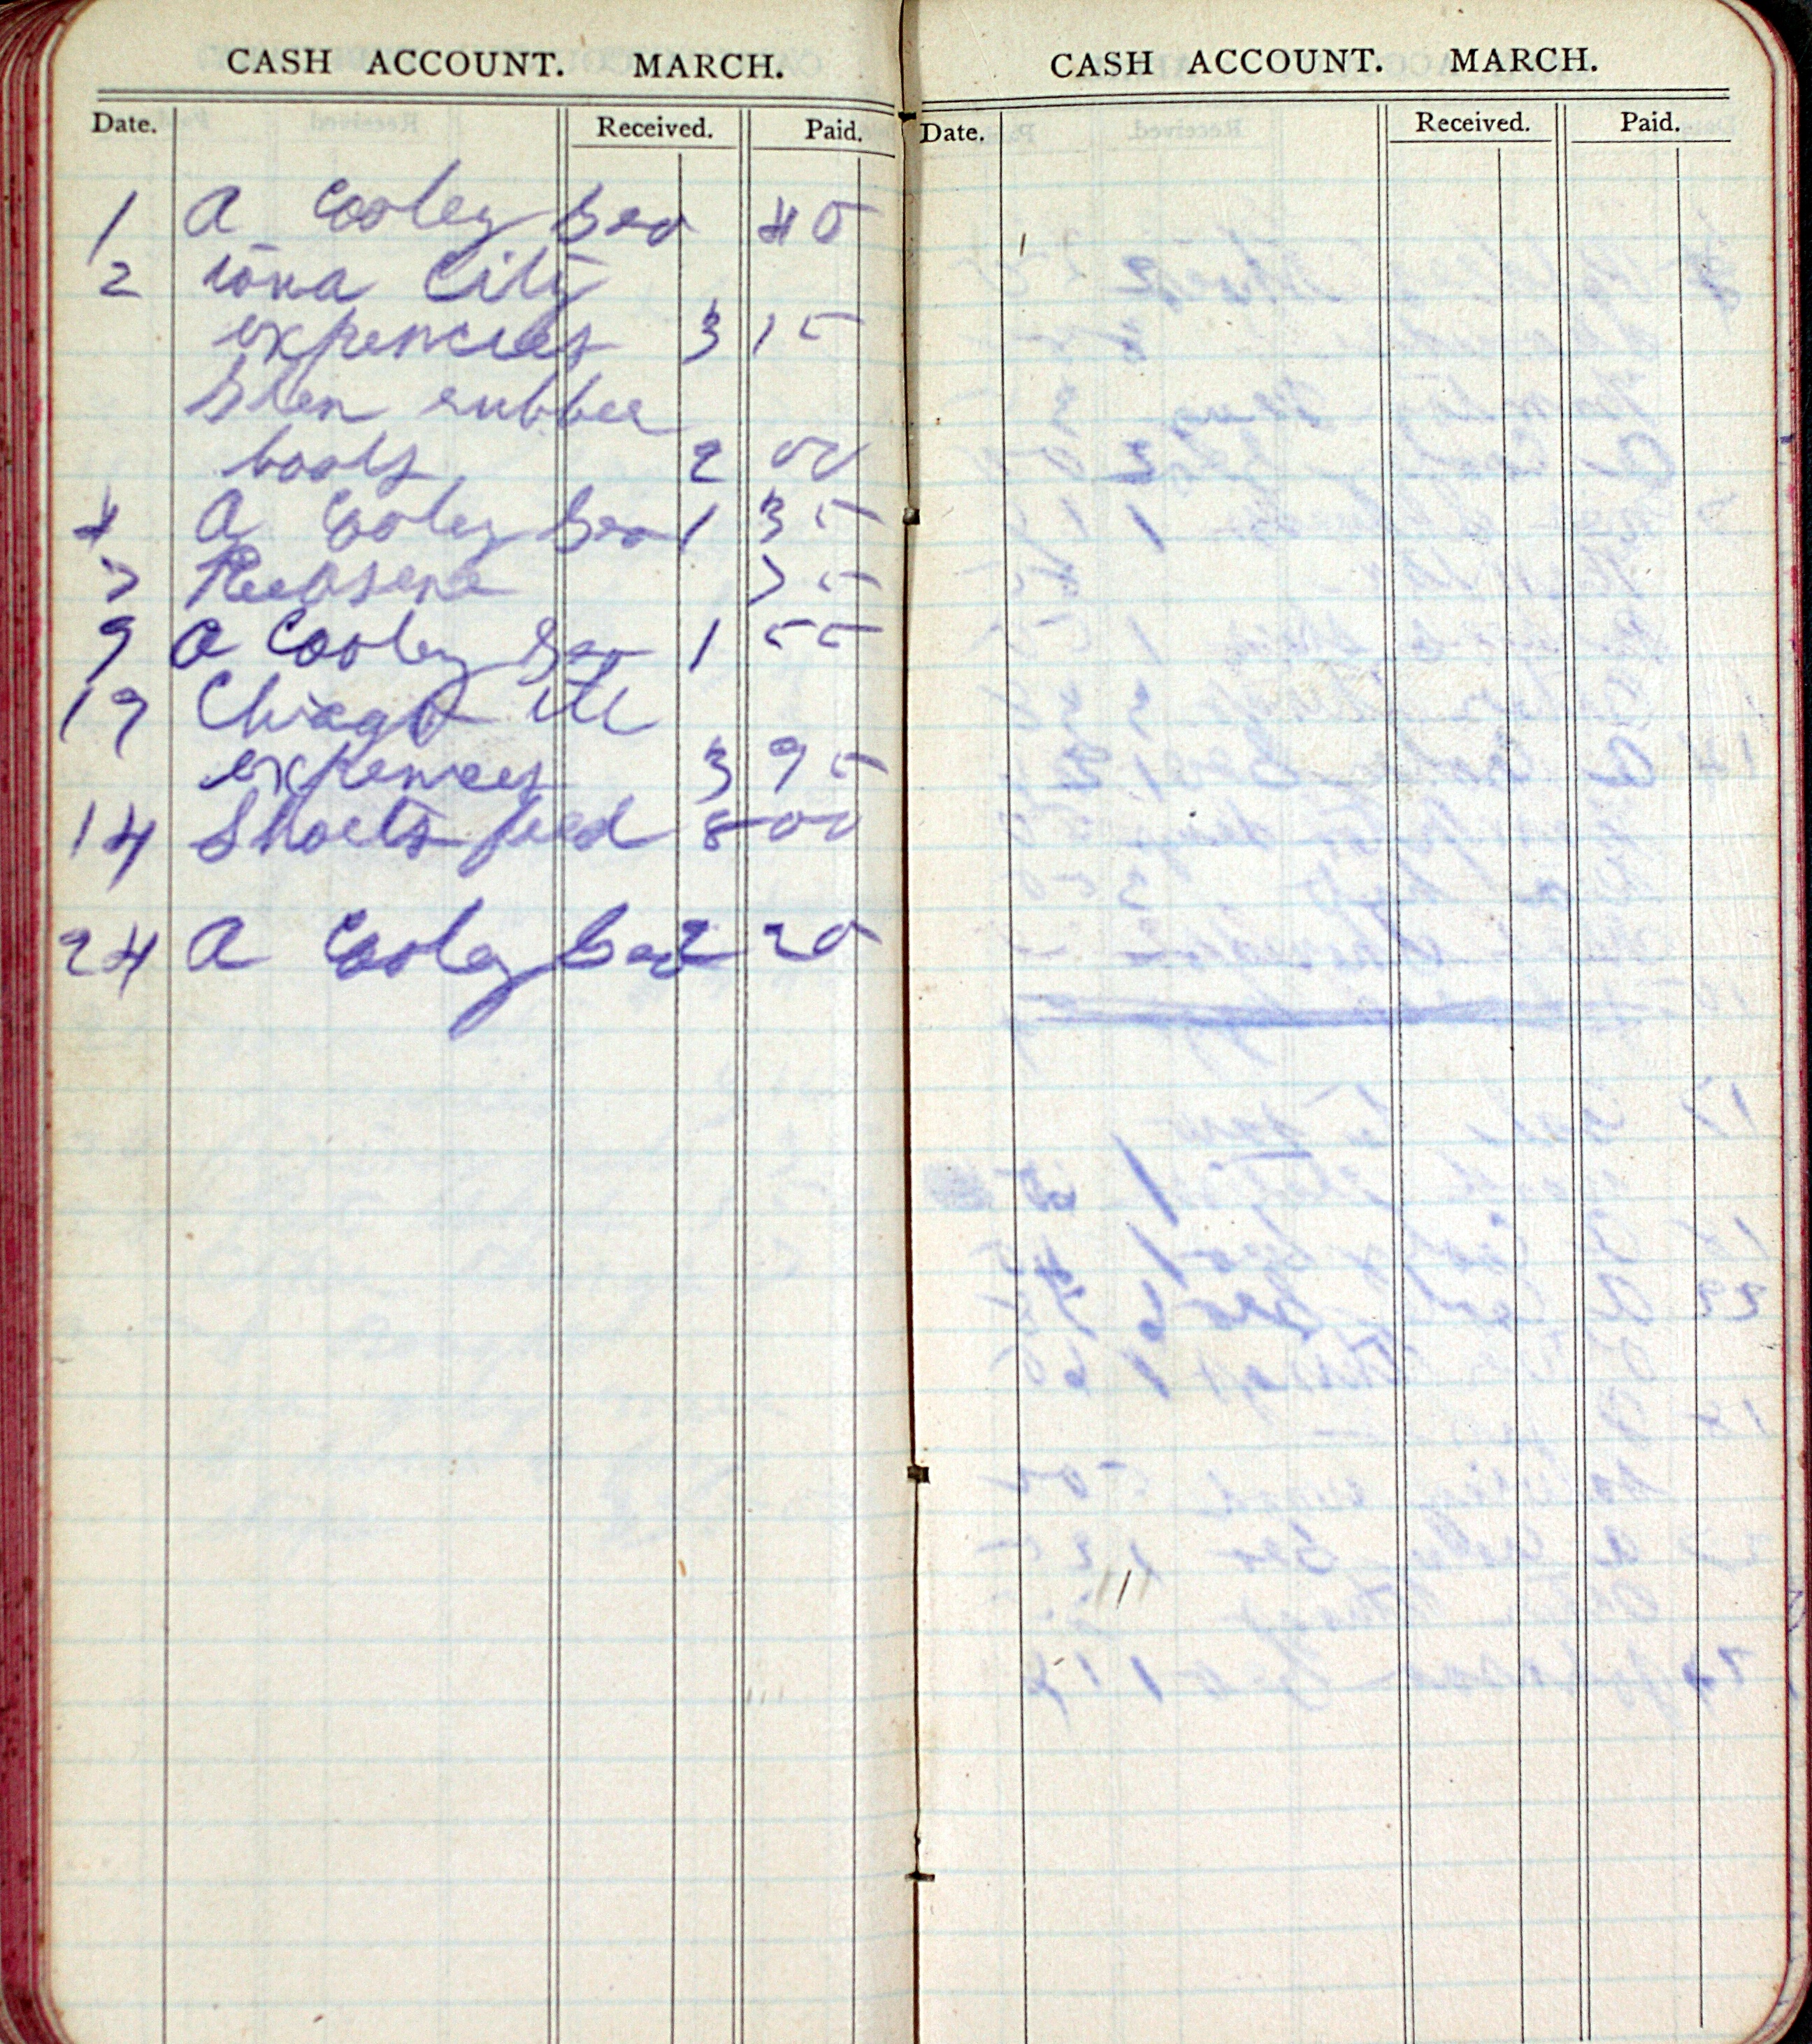 CASH ACCOUNT. MARCH.
Date. Received. Paid.
1 A Cooley Gro 40
2 Iowa City
expencies 3 15
Glen rubber
boots 2 00
4 A Cooley Gro 1 35
7 75
9 A Cooley Gro 1 55
19 Chicago Ill
expences 3 95
14 Shoets feed 8 00
24 A Cooley Gro 2 20
CASH ACCOUNT. MARCH.
Date. Received. Paid.